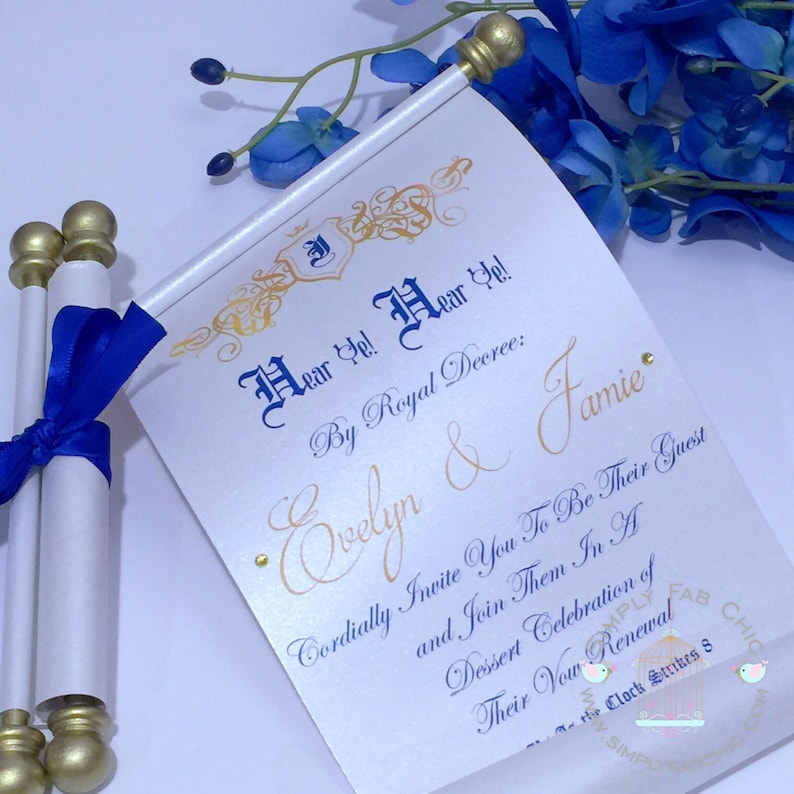 I
Hear Ye! Hear Ye!
By Royal Decree:
Evelyn & Jamie
Cordially Invite You To Be Their Guest
and Join Them In A
Dessert Celebration of
Their Vow Renewal
As the Clock Strikes 8
SIMPLY FAB CHIC
WWW.SIMPLYFABCHIC.COM